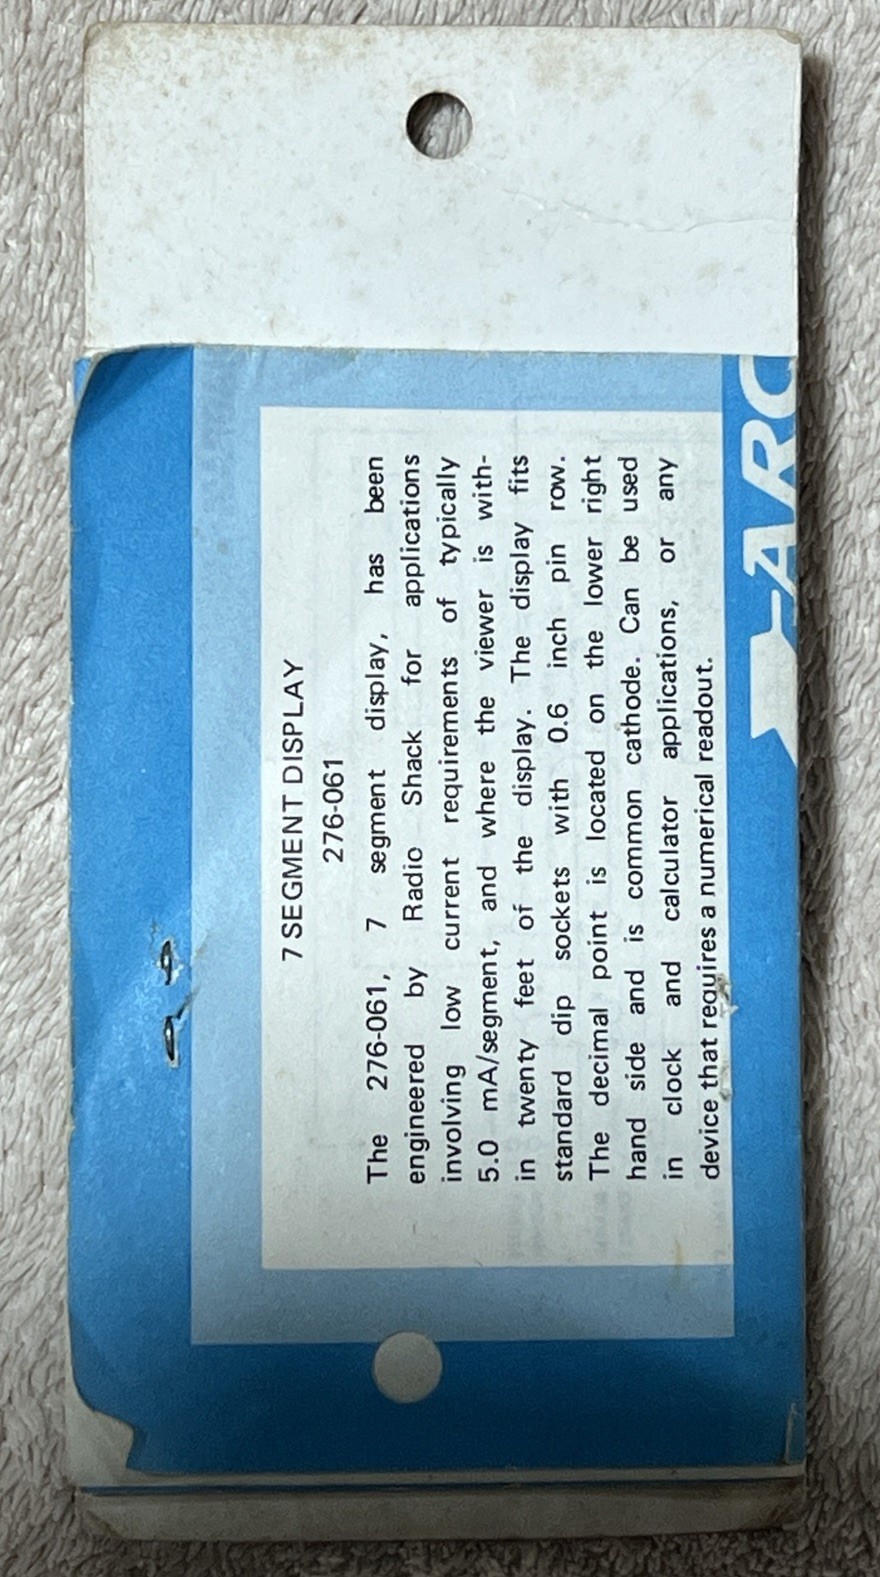 7 SEGMENT DISPLAY
276-061
The 276-061, 7 segment display, has been
engineered by Radio Shack for applications
involving low current requirements of typically
5.0 mA/segment, and where the viewer is with-
in twenty feet of the display. The display fits
standard dip sockets with 0.6 inch pin row.
The decimal point is located on the lower right
hand side and is common cathode. Can be used
in clock and calculator applications, or any
device that requires a numerical readout.
ARC